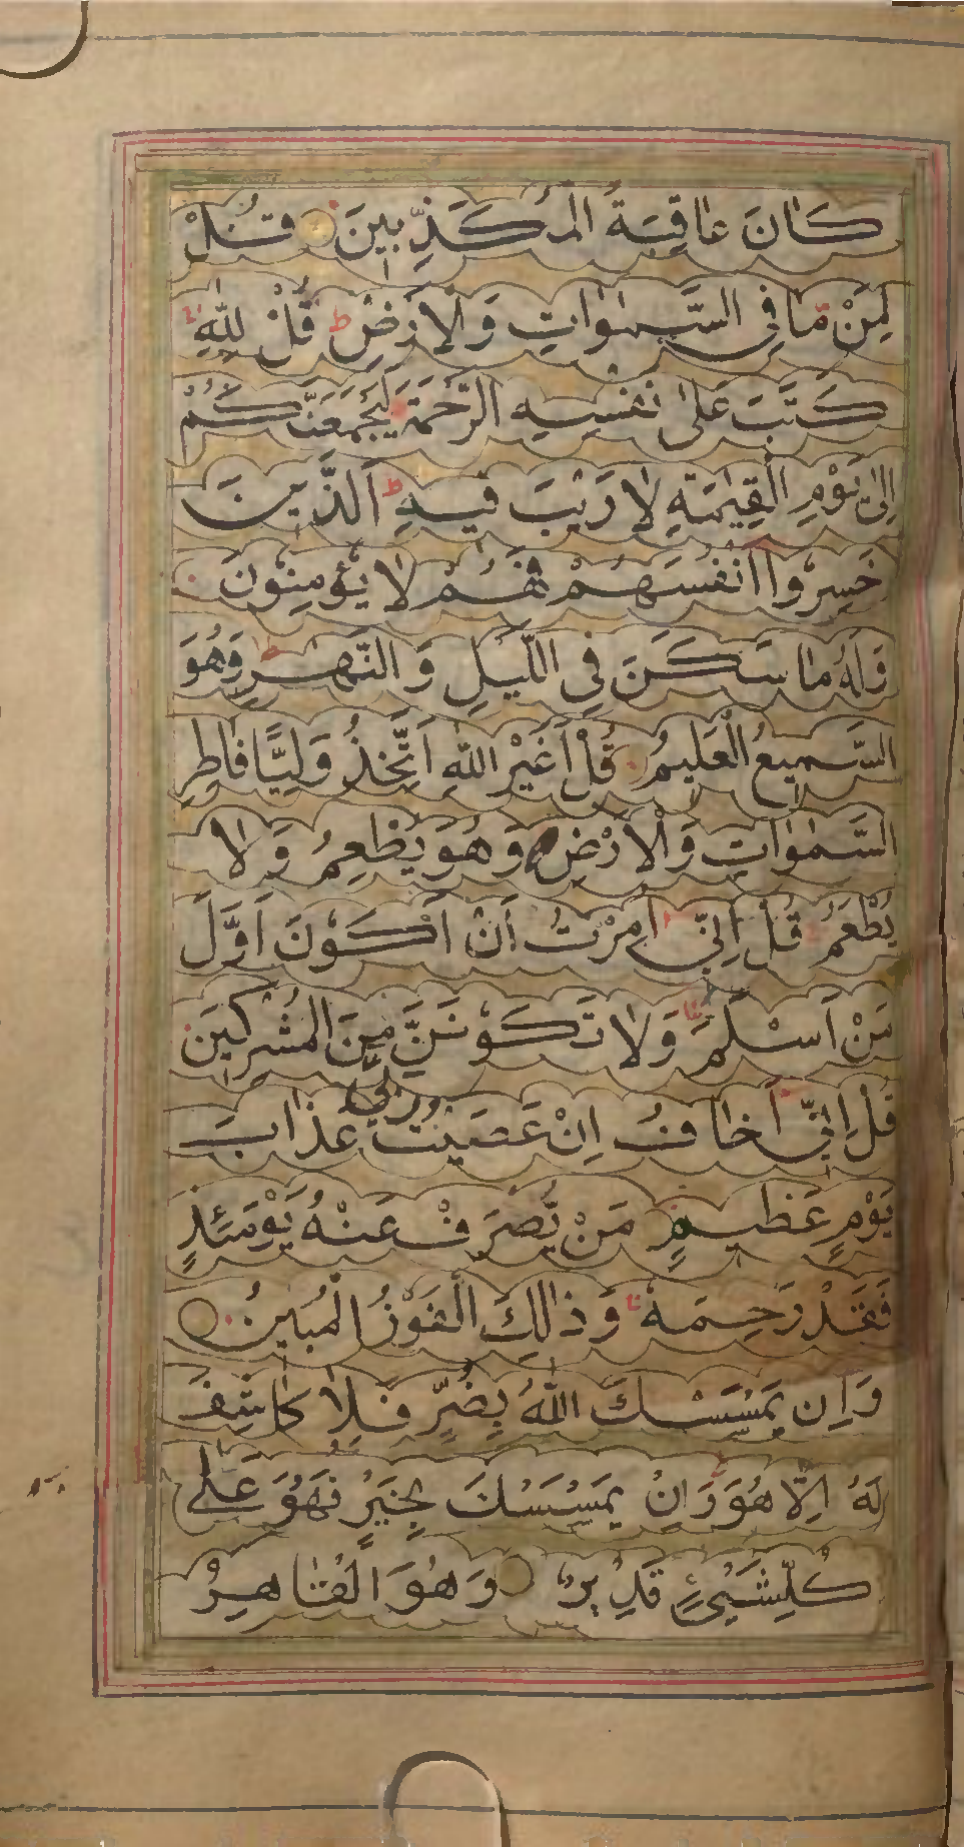 كَانَ عَاقِبَةُ الْمُكَذِّبِينَ قُلْ
لِمَنْ مَّا فِي السَّمٰوَاتِ وَالْاَرْضِ ط قُلْ لِلّٰهِ
كَتَبَ عَلٰى نَفْسِهِ الرَّحْمَةَ لَيَجْمَعَنَّكُمْ
اِلٰى يَوْمِ الْقِيٰمَةِ لَا رَيْبَ فِيهِ ط اَلَّذِينَ
خَسِرُوا اَنْفُسَهُمْ فَهُمْ لَا يُؤْمِنُونَ
وَلَهُ مَا سَكَنَ فِي اللَّيْلِ وَالنَّهٰرِ ط وَهُوَ
السَّمِيعُ الْعَلِيمُ قُلْ اَغَيْرَ اللّٰهِ اَتَّخِذُ وَلِيًّا فَاطِرِ
السَّمٰوَاتِ وَالْاَرْضِ وَهُوَ يُطْعِمُ وَلَا
يُطْعَمُ قُلْ اِنِّي اُمِرْتُ اَنْ اَكُوْنَ اَوَّلَ
مَنْ اَسْلَمَ وَلَا تَكُوْنَنَّ مِنَ الْمُشْرِكِينَ
قُلْ اِنِّي اَخَافُ اِنْ عَصَيْتُ رَبِّي عَذَابَ
يَوْمٍ عَظِيمٍ مَنْ يُّصْرَفْ عَنْهُ يَوْمَئِذٍ
فَقَدْ رَحِمَهُ وَذٰلِكَ الْفَوْزُ الْمُبِينُ
وَاِن يَمْسَسْكَ اللّٰهُ بِضُرٍّ فَلَا كَاشِفَ
لَهُ اِلَّا هُوَ وَاِنْ يَمْسَسْكَ بِخَيْرٍ فَهُوَ عَلٰى
كُلِّ شَيْئٍ قَدِيرٌ وَهُوَ الْقَاهِرُ